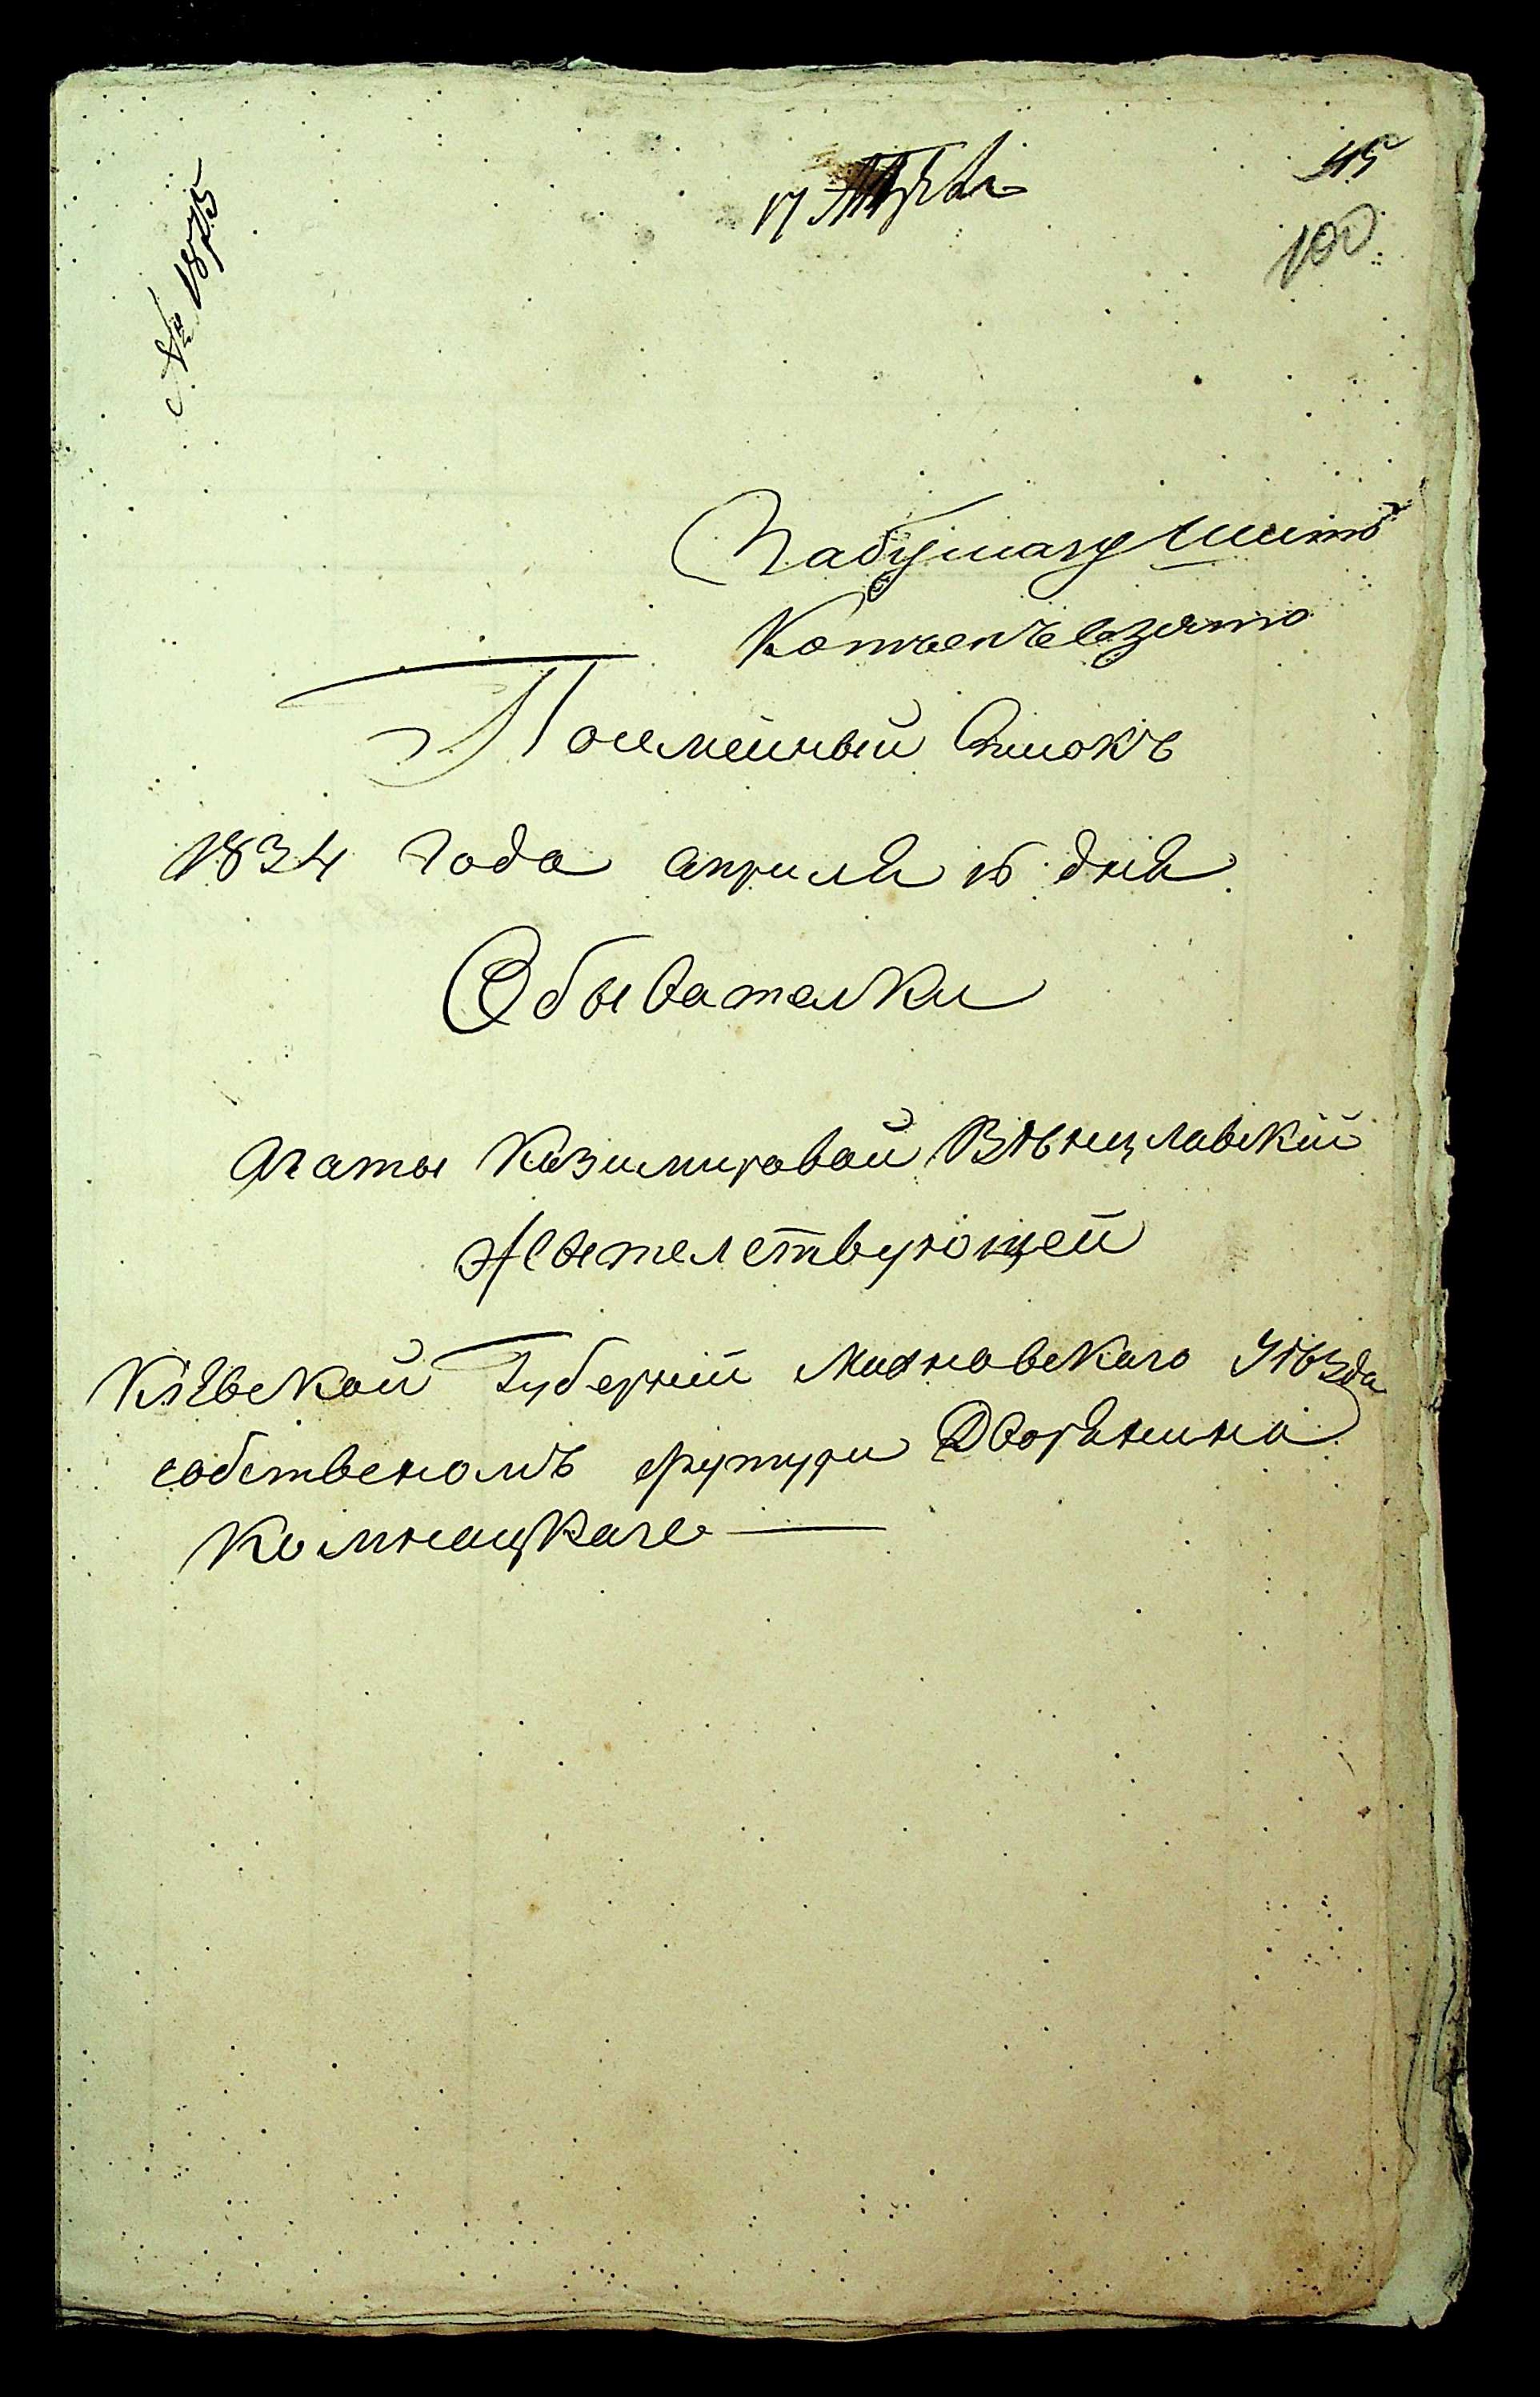 № 1875
45
100
За бумагу шесть
Копѣекъ взято
Посемейный Списокъ
1834 года апреля 16 дня
Обывателки
Агаты Казимировой Вѣнцлавскій
Жителствующей
Кіевской Губерніи Махновского Уѣзда
собственомъ футури Дворянина
Комнацкаго